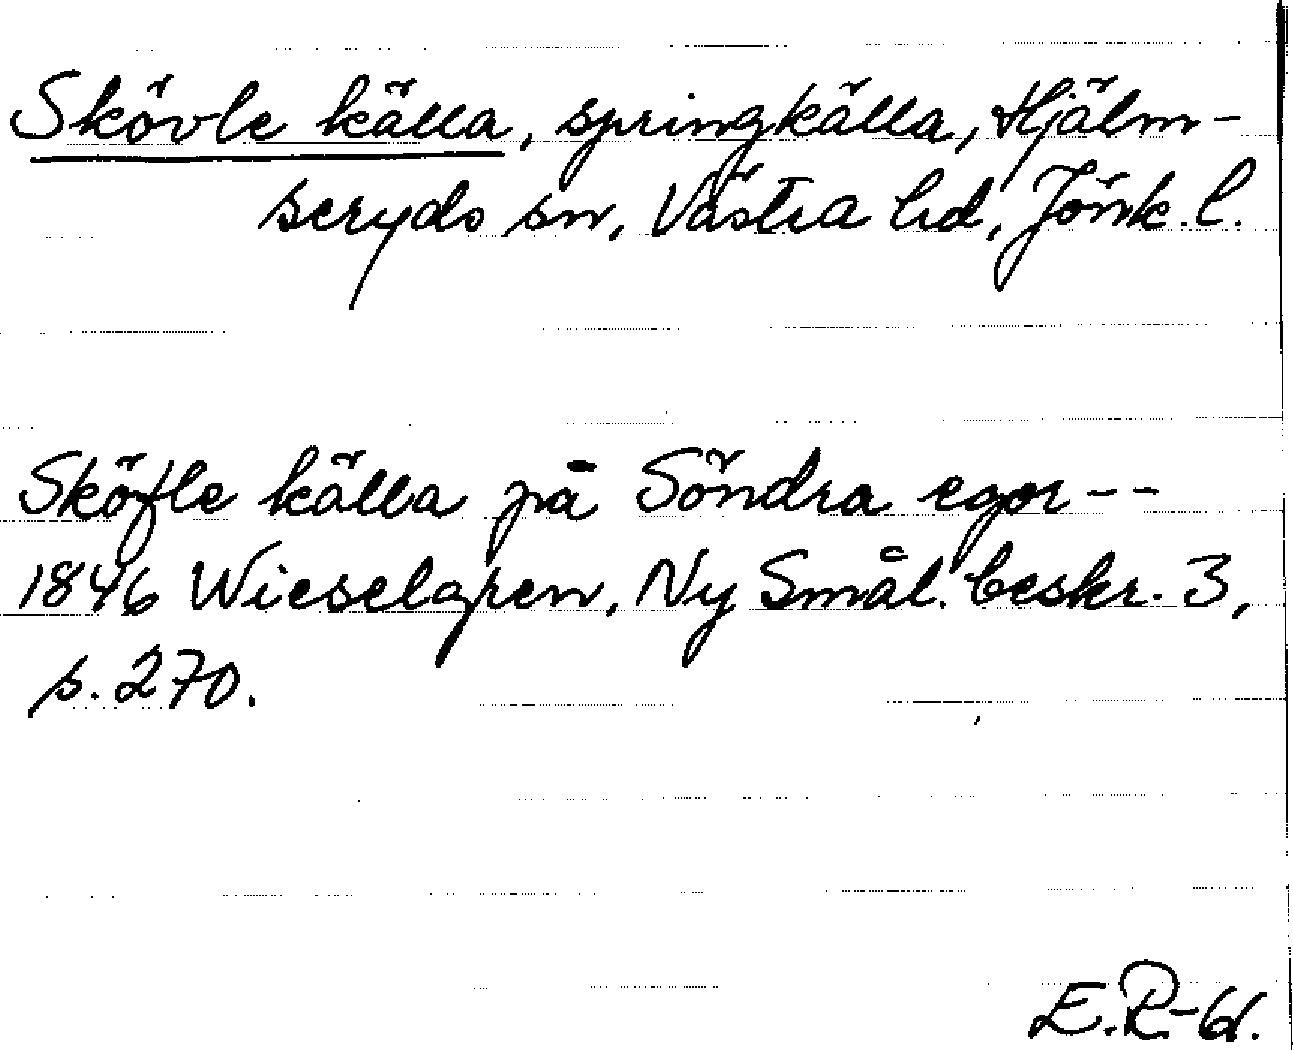 Skövle källa, springkälla, Hjälm-
seryds sn, Västra hd, Jönk. l.
Sköfle källa på Söndra egor--
1846 Wieselgren, Ny Smål. beskr. 3,
s. 270.
E.R.-61.